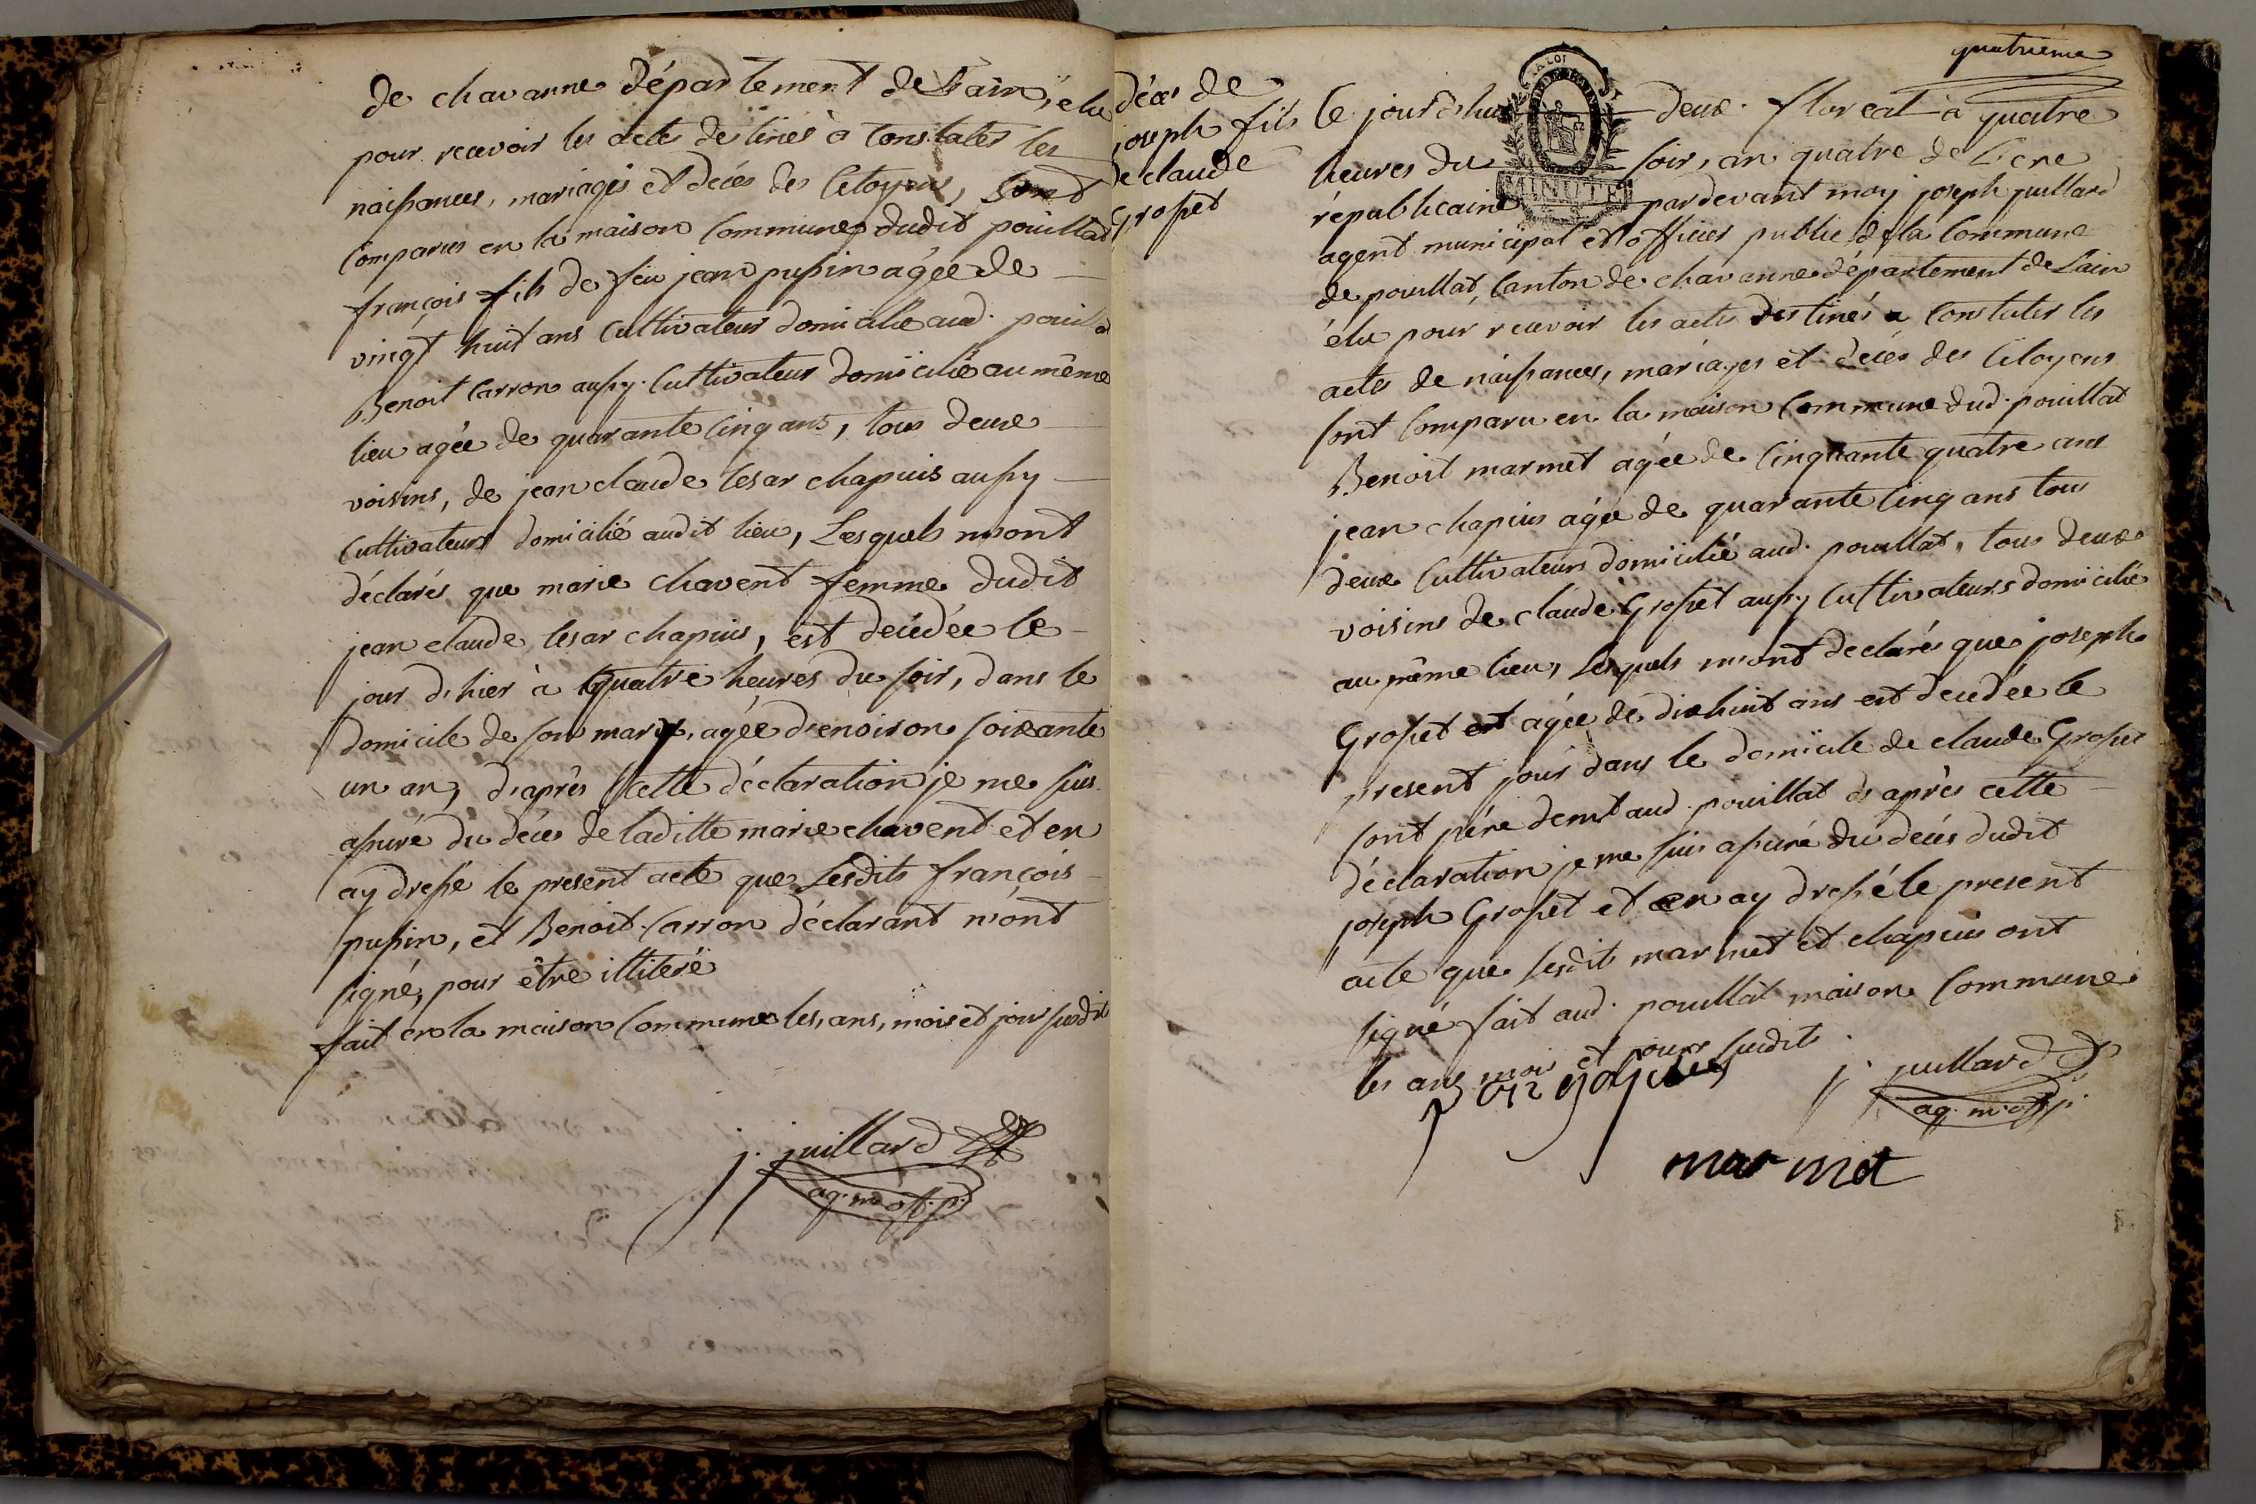 de chavanne département de Lain, élu
pour recevoir les acte destinés à Constater les
naissances, mariages et décés des Citoyens, Sont
Comparus en la maison Commune dudit pouillat
françois fils de feu jean pupin agée de
vingt huit ans Cultivateur domicilié aud. pouillat
Benoit Carron aussy Cultivateur domicilié au même
lieu agée de quarante Cinq ans, tous deux
voisins, de jean claude Cesar chapuis aussy
Cultivateur domicilié audit lieu, Lesquels m'ont
déclarés que marie chavent femme dudit
jean claude Cesar chapuis, est décédée le
jour d'hier à Quatre heures du soir, dans le
domicile de son mary, agée d'enoiron soixante
un an, d'après cette déclaration je me suis
assuré du décés de laditte marie chavent et en
ay dressé le present acte que Lesdits françois
pupin, et Benoit Carron déclarant n'ont
signé, pour être illiteré
fait en la maison Commune les, ans, mois et jour susdit
j. juillard
ag. m. off. p.
quatrieme
décés de
joseph fils
de claude
Grosset
LA LOI
MINUTE
Ce jourd'hui deux floreal à quatre
heures du soir, an quatre de L'ere
républicaine pardevant moy joseph juillard
agent municipal et officier public de la Commune
de pouillat, Canton de chavanne département de Lain
élu pour recevoir les actes destinés a Constater les
actes de naissances, mariages et décés des Citoyens
sont Comparu en la maison Commune dud. pouillat
Benoit marmet agée de Cinquante quatre ans
jean chapuis agée de quarante Cinq ans tous
deux Cultivateurs domicilié aud. pouillat, tous deux
voisins de claude Grosset aussy Cultivateurs domicilié
au même lieu, Lesquels m'ont declarés que joseph
Grosset est agée de dixhuit ans est decedée le
present jour dans le domicile de claude Grosset
sont père aud. pouillat d'après cette
déclaration je me suis assuré du décés dudit
joseph Grosset et en ay dressé le present
acte que lesdits marmet et chapuis ont
signé fait aud. pouillat maison Commune
les ans mois et jours susdits
j. juillard
ag. m. off. p.
marmet